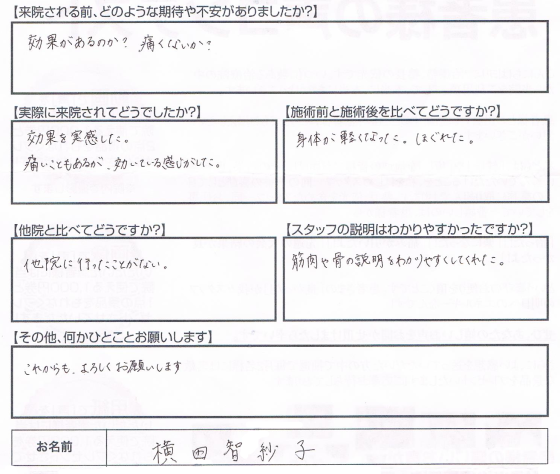 【来院される前、どのような期待や不安がありましたか?】
効果があるのか? 痛くないか?
【実際に来院されてどうでしたか?】
効果を実感した。
痛いこともあるが、効いている感じがした。
【施術前と施術後を比べてどうですか?】
身体が軽くなった。ほぐれた。
【他院と比べてどうですか?】
他院に行ったことがない。
【スタッフの説明はわかりやすかったですか?】
筋肉や骨の説明をわかりやすくしてくれた。
【その他、何かひとことお願いします】
これからも、よろしくお願いします
お名前
横田智紗子